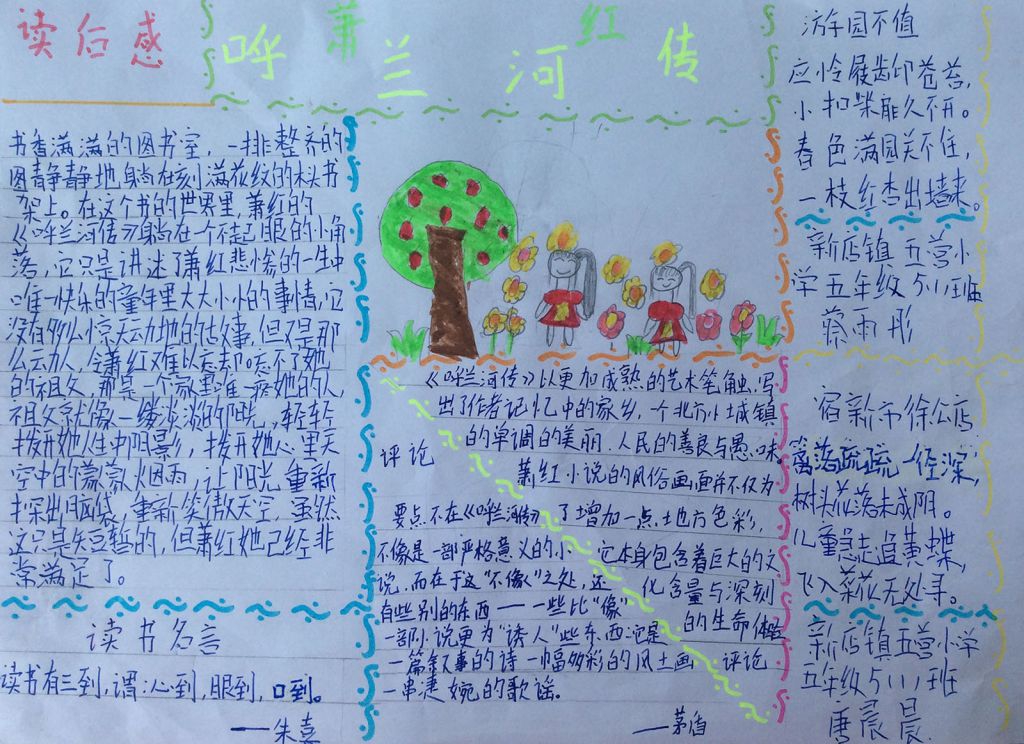 读后感
呼兰河传
萧红
书香满满的图书室，一排整齐的
图静静地躺在刻满花纹的木头书
架上。在这个书的世界里，萧红的
《呼兰河传》躺在一个不起眼的小角
落，它只是讲述了萧红悲惨的一生中
唯一快乐的童年里大大小小的事情，它
没有多么惊天动地的故事，但不是那
么动人，令萧红难以忘却忘不了她
的祖父，那是一个家里唯一疼她的人
祖父就像一缕淡淡的阳光，轻轻
拨开她人生中阴影，拨开她心里天
空中的蒙蒙烟雨，让阳光重新
探出脑袋，重新笑傲天空，虽然
这只是短暂的，但萧红她已经非
常满足了。
读书名言
读书有三到，谓：心到，眼到，口到。
——朱熹
《呼兰河传》以更加成熟的艺术笔触，写
出了作者记忆中的家乡，一个北方小城镇
的单调的美丽、人民的善良与愚昧
萧红小说的风俗画面并不仅为
了增加一点地方色彩，
它本身包含着巨大的文
化含量与深刻
的生命体验
评论
评论
要点不在《呼兰河传》
不像是一部严格意义的小
说，而在于这“不像”之处，还
有些别的东西——一些比“像”
一部小说更为“诱人”些东西：它是
一篇叙事的诗一幅多彩的风土画
一串凄婉的歌谣。
——茅盾
游园不值
应怜屐齿印苍苔，
小扣柴扉久不开。
春色满园关不住，
一枝红杏出墙来。
新店镇五营小
学五年级5(1)班
蔡雨彤
宿新市徐公店
篱落疏疏一径深，
树头花落未成阴。
儿童急走追黄蝶，
飞入菜花无处寻。
新店镇五营小学
五年级5(1)班
唐晨晨